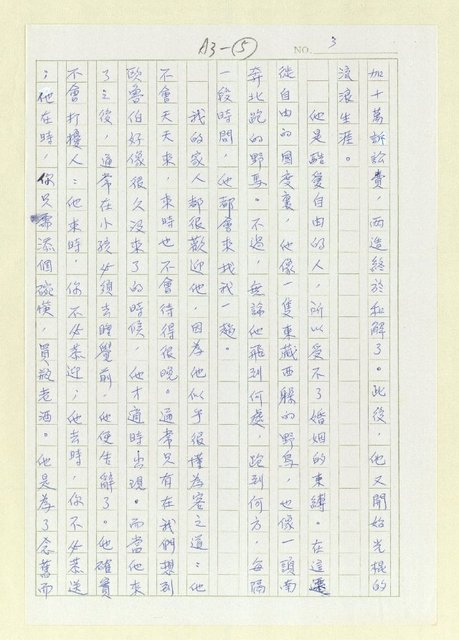 A3-⑤
NO. 3
加十萬訴訟費，兩造終於和解了。此後，他又開始光棍的
流浪生涯。
他是酷愛自由的人，所以受不了婚姻的束縛。在這
從自由的國度裏，他像一隻東藏西躲的野鳥，也像一頭南
奔北跑的野馬。不過，無論他飛到何處，跑到何方，每隔
一段時間，他都會來找我一趟。
我的家人都很歡迎他，因為他似乎很懂為客之道：他
不會天天來，來時也不會待得很晚。通常只有在我們想到
歐魯伯好像很久沒來了的時候，他才適時出現。而當他來
了之後，通常在小孩必須去睡覺前，他便告辭了。他確實
不會打擾人：他來時，你不必恭迎；他去時，你不必恭送
；他在時，你只需添個碗筷，買瓶老酒。他是為了念舊而